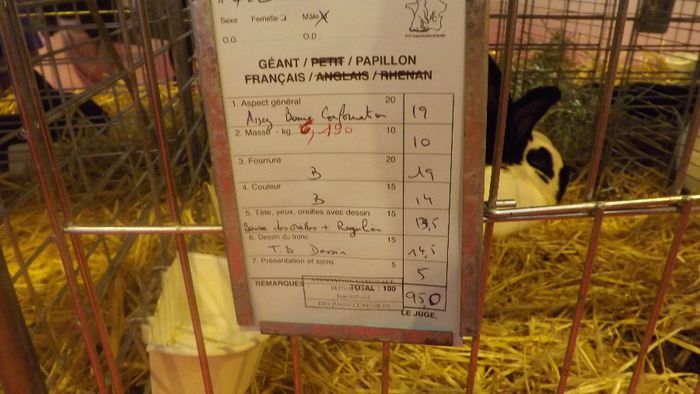 Sexe Femelle Mâle X
O.G. O.D.
GÉANT / PETIT / PAPILLON
FRANÇAIS / ANGLAIS / RHENAN
1. Aspect général 20 19
Assez Bonne Conformation
2. Masse - kg 6,190 10 10
3. Fourrure 20 19
B
4. Couleur 15 14
B
5. Tête, yeux, oreilles avec dessin 15 13,5
6. Dessin du tronc 15 14,5
T.B Dessin
7. Présentation et soins 5 5
REMARQUES TOTAL : 100 95,0
LE JUGE,